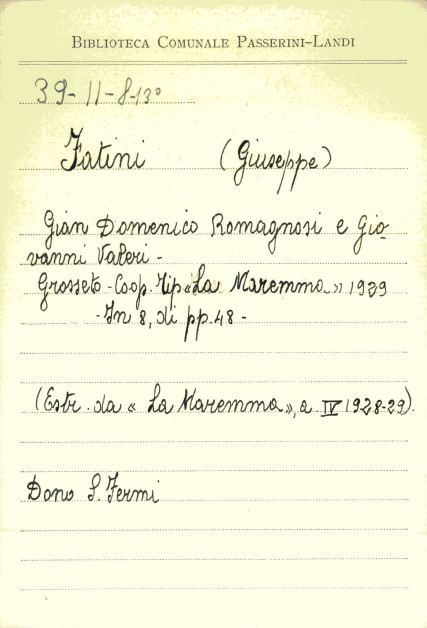 BIBLIOTECA COMUNALE PASSERINI-LANDI
39-11-8-13°
Fatini (Giuseppe)
Gian Domenico Romagnosi e Gio-
vanni Valeri -
Grosseto - Coop. Tip. «La Maremma» 1929
- In 8, di pp. 48 -
(Estr. da « La Maremma», a IV 1928-29).
Dono S. Fermi